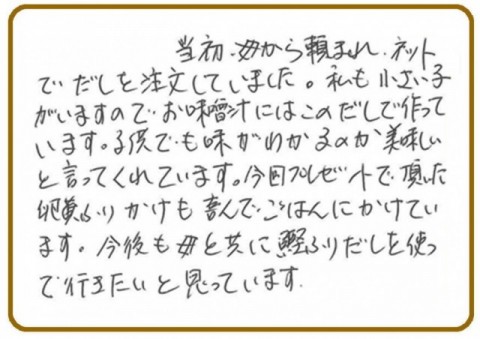 当初、母から頼まれ、ネット
でだしを注文していました。私も小さい子
がいますのでお味噌汁にはこのだしで作って
います。子供でも味がわかるのか美味しい
と言ってくれています。今回プレゼントで頂いた
卵黄ふりかけも喜んでごはんにかけてい
ます。今後も母と共に鰹ふりだしを使っ
て行きたいと思っています。